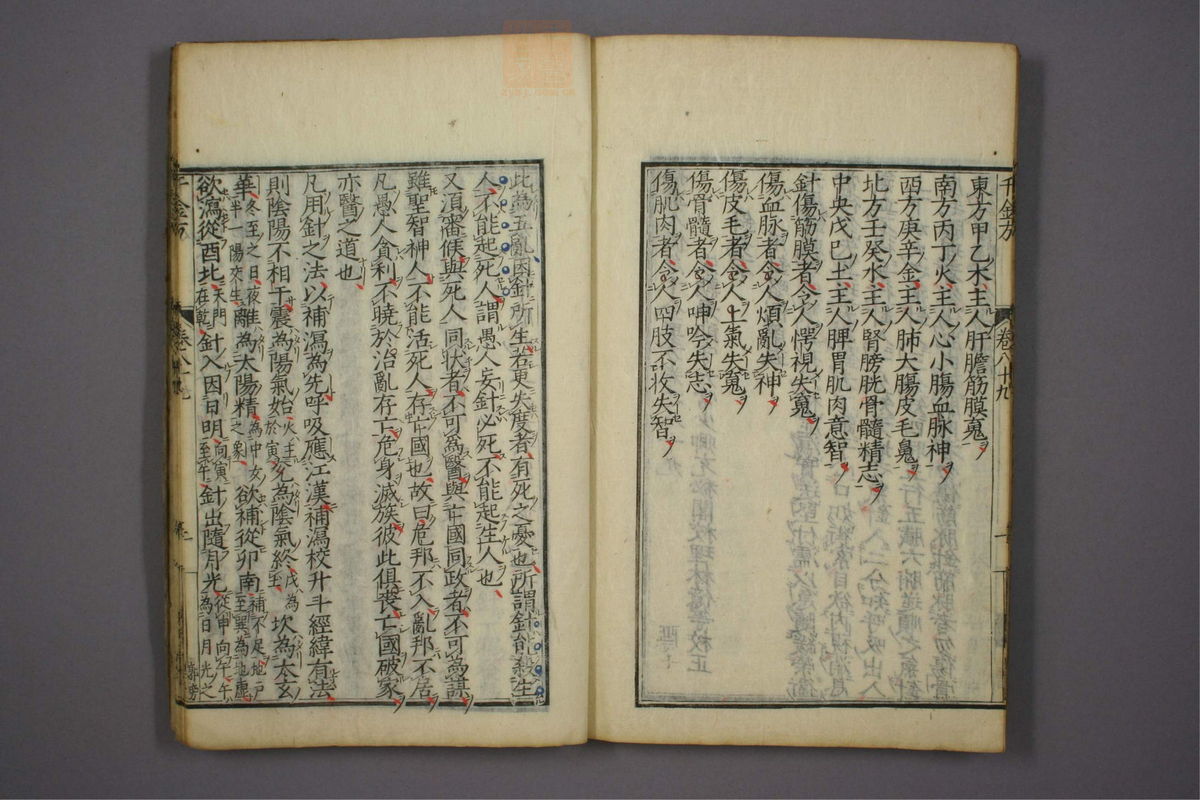 東方甲乙木主人肝膽筋膜䰟
南方丙丁火主人心小腸血脉神
西方庚辛金主人肺大腸皮毛䰟
北方壬癸水主人腎膀胱骨髓精志
中央戊巳土主人脾胃肌肉意智
針傷筋膜者令人愕視失䰟
傷血脉者令人煩亂失神
傷皮毛者令人上氣失䰟
傷骨髓者令人呻吟失志
傷肌肉者令人四肢不收失智
此為五亂因針所生若更失度者有死之憂也所謂針能殺生
人不能起死人謂愚人妄針必死不能起生人也
又須審候與死人同狀者不可為醫與亡國同政者不可為謀
雖聖智神人不能活死人存亡國也故曰危邦不入亂邦不居
凡愚人貪利不曉於治亂存亡危身滅族彼此俱喪亡國破家
亦醫之道也
凡用針之法以補瀉為先呼吸應江漢補瀉校升斗經緯有法
則陰陽不相干震為陽氣始火生於寅兌為陰氣終戊為土坎為太玄
華冬至之日夜半一陽爻生離為太陽精為中女之象欲補從卯南補不足地戶至巽為地虛
欲瀉從酉北天門在乾針入因日明向寅至午針出隨月光從申向午午為日月光之
千金方
卷八十九
千金方
卷八十九